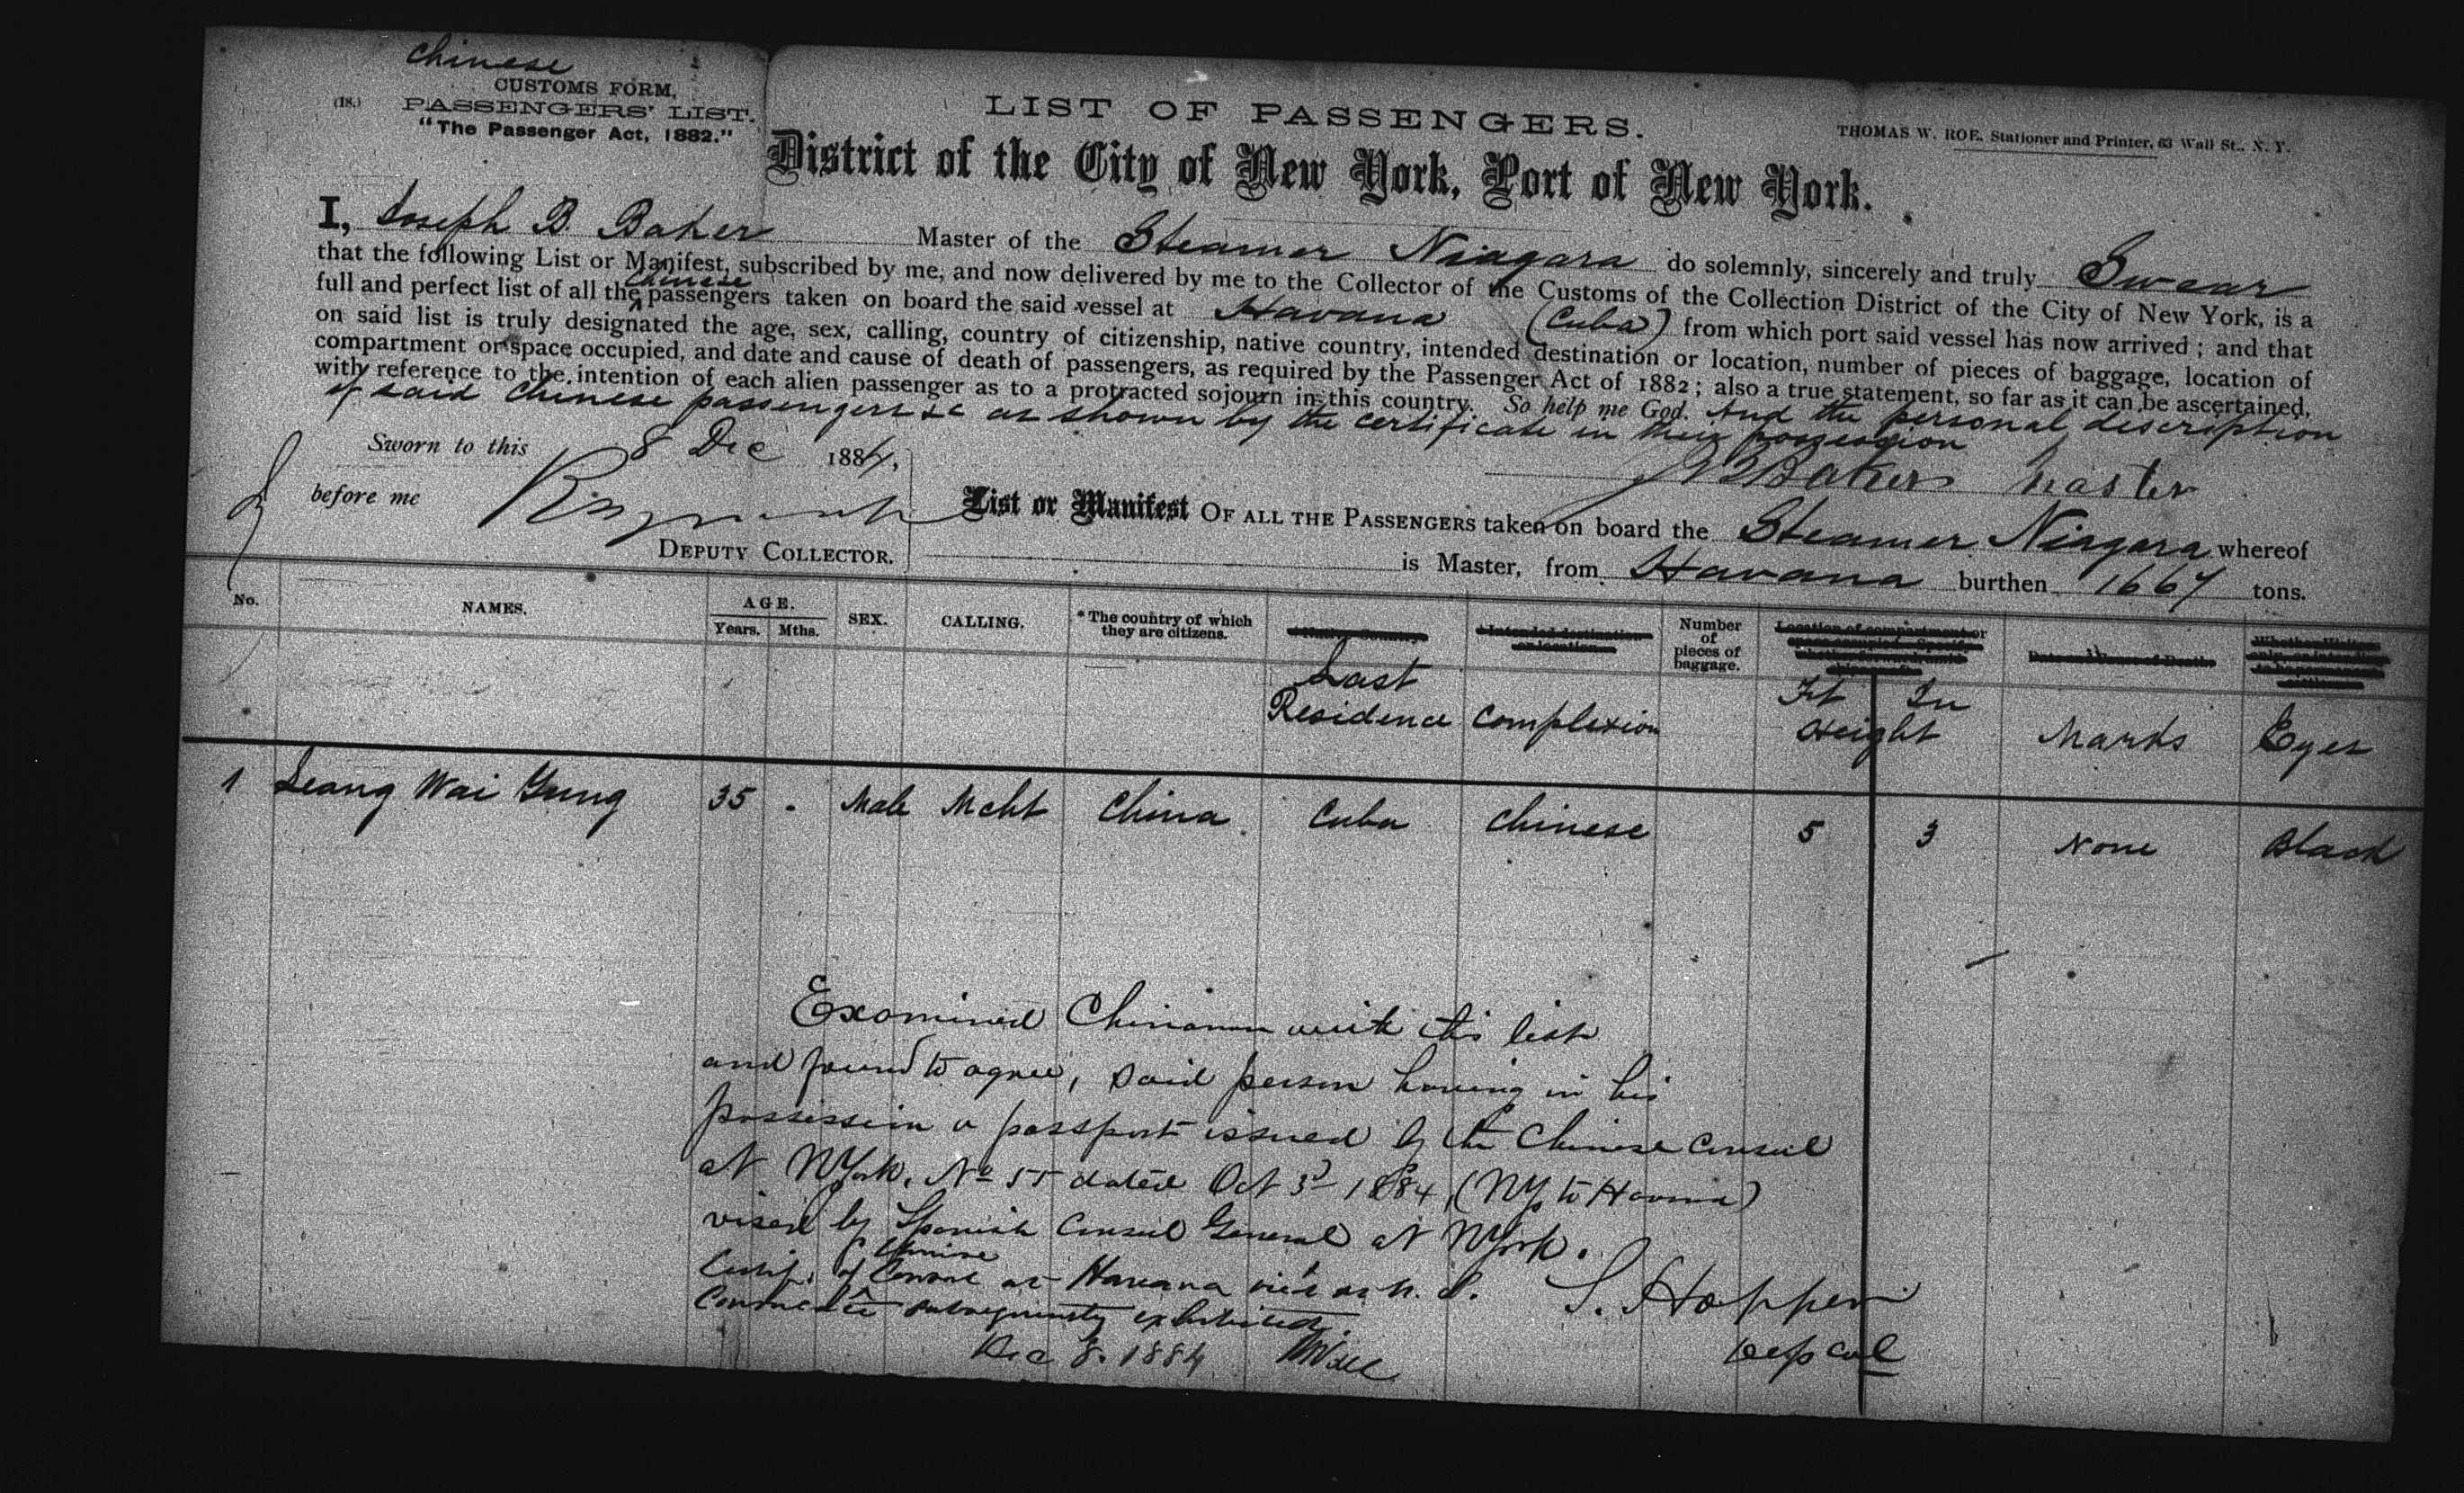 Chinese
CUSTOMS FORM,
(18.) PASSENGERS' LIST.
"The Passenger Act, 1882."
LIST OF PASSENGERS.
THOMAS W. ROE, Stationer and Printer, 63 Wall St., N. Y.
District of the City of New York, Port of New York.
I, Joseph B. Baker Master of the Steamer Niagara do solemnly, sincerely and truly Swear
that the following List or Manifest, subscribed by me, and now delivered by me to the Collector of the Customs of the Collection District of the City of New York, is a
full and perfect list of all the Chinese passengers taken on board the said vessel at Havana (Cuba) from which port said vessel has now arrived; and that
on said list is truly designated the age, sex, calling, country of citizenship, native country, intended destination or location, number of pieces of baggage, location of
compartment or space occupied, and date and cause of death of passengers, as required by the Passenger Act of 1882; also a true statement, so far as it can be ascertained,
with reference to the intention of each alien passenger as to a protracted sojourn in this country. So help me God. And the personal description
of said Chinese passengers &c as shown by the certificate in their possession
Sworn to this 8 Dec 1884,
J B Baker Master
before me
DEPUTY COLLECTOR.
List or Manifest OF ALL THE PASSENGERS taken on board the Steamer Niagara whereof
is Master, from Havana burthen 1667 tons.
No. NAMES. AGE. Years. Mths. SEX. CALLING. * The country of which they are citizens. Number of pieces of baggage.
Last Residence Complexion Ft In Height Marks Eyes
1 Leang Wai Gung 35 . Male Mcht China Cuba Chinese 5 3 None Black
Examined Chinaman with this list
and found to agree, said person having in his
possession a passport issued by the Chinese Consul
at NYork, No 55 dated Oct 3d 1884, (NY to Havana)
viséd by Spanish Consul General at NYork.
Certif. of Chinese Consul at Havana
subsequently exhibited.
S. Hopper
Dep Col
Dec 8. 1884